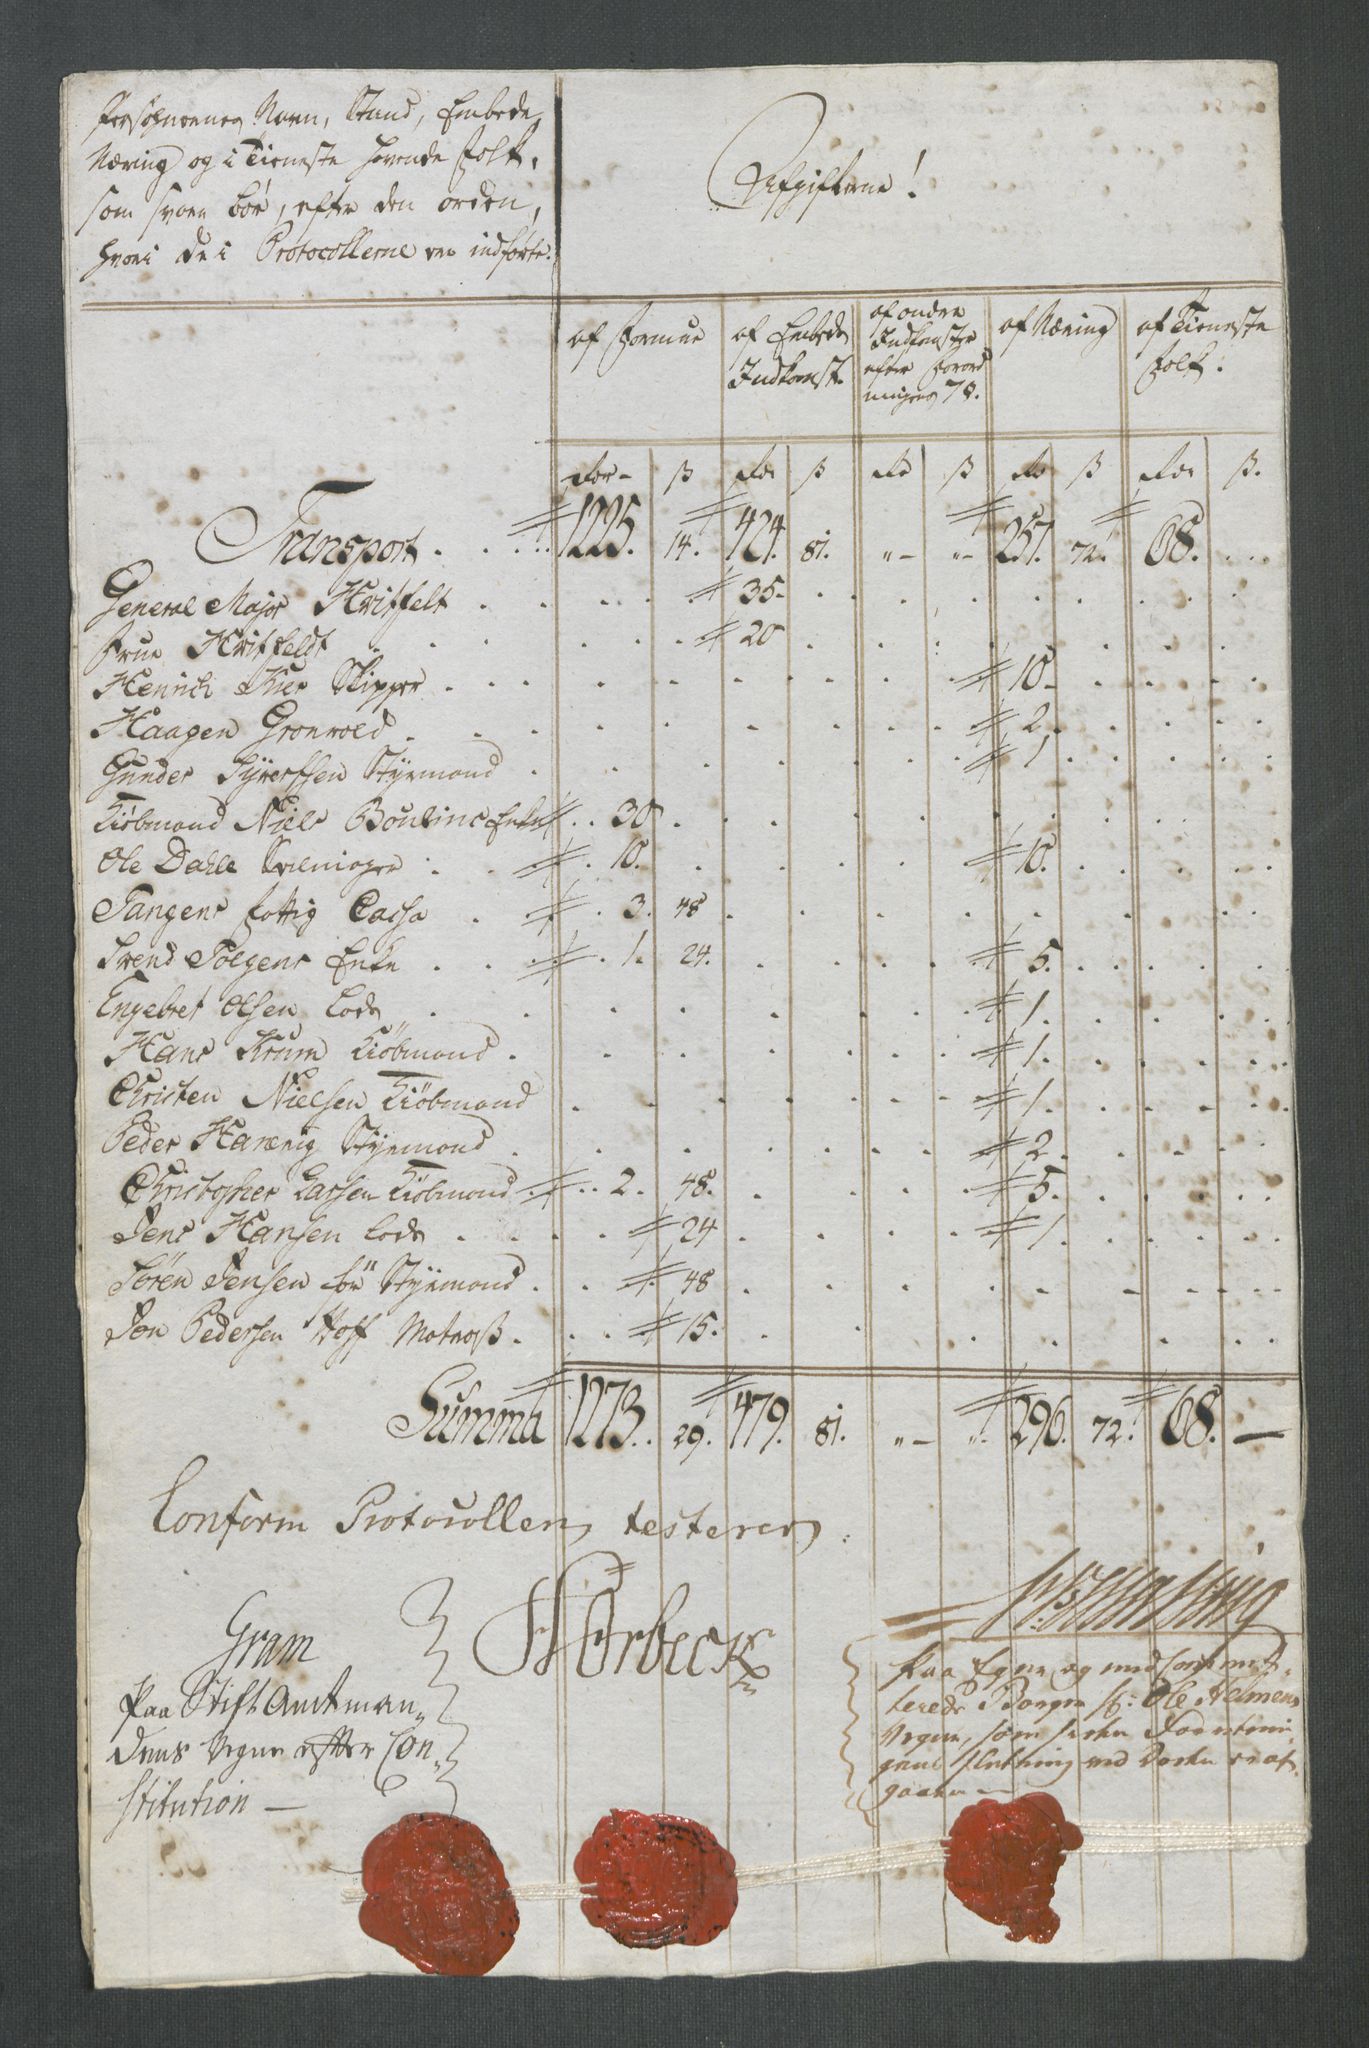 Persohnernes Navn, Stand, Embede,
Næring og i Tieneste havende Folk,
som svare bör, efter den orden,
hvori de i Protocollerne ere indførte.
Afgifterne!
af Formue
af Embeds Indkomst.
af andre Indkomster efter Forordningens 7 §.
af Næring
af Tieneste Folk.
Rdr ß Rdr ß Rdr ß Rdr ß Rdr ß.
Transport . . . 1225. 14. 424. 81. „– „– 257. 72. 68. . . .
General Major Hvitfelt . . . . . 35.
Frue Hvitfeldt . . . . . 20
Henrich Kier Skipper . . . . 10.
Haagen Gronvold . . . . 2.
Gunder Syversen Styrmand . . . 1.
Kiöbmand Niels Boulins Enke . . 30
Ole Dahle . 10. . . . 10.
Tangens fattig Cassa . . 3. 48
Svend Solgens Enke . . . 1. 24. . . . 5.
Engebret Olsen Lods . . . . 1.
Hans Krum Kiöbmand . . . . 1.
Christen Nielsen Kiöbmand . . . 1.
Peder Styrmand . . . . 2.
Christopher Larsen Kiöbmand . . 2. 48. . . . 5.
Jens Hansen Lods . . . . 24 . . . 1.
Sören Jensen Styrmand . . . 48
Jon Pedersen Hoff Matroß . . . 15.
Summa 1273. 29. 479. 81. „– „. 296. 72. 68. —
Conform Protocollen testerer
Gram
Paa Stift Amtman„
dens Vegne efter Con„
stitution —
Hörbeck
Paa Egne og med
terede Borger Sr: Ole
Vegne, som
slutning ved Døden er af„
gaaen —